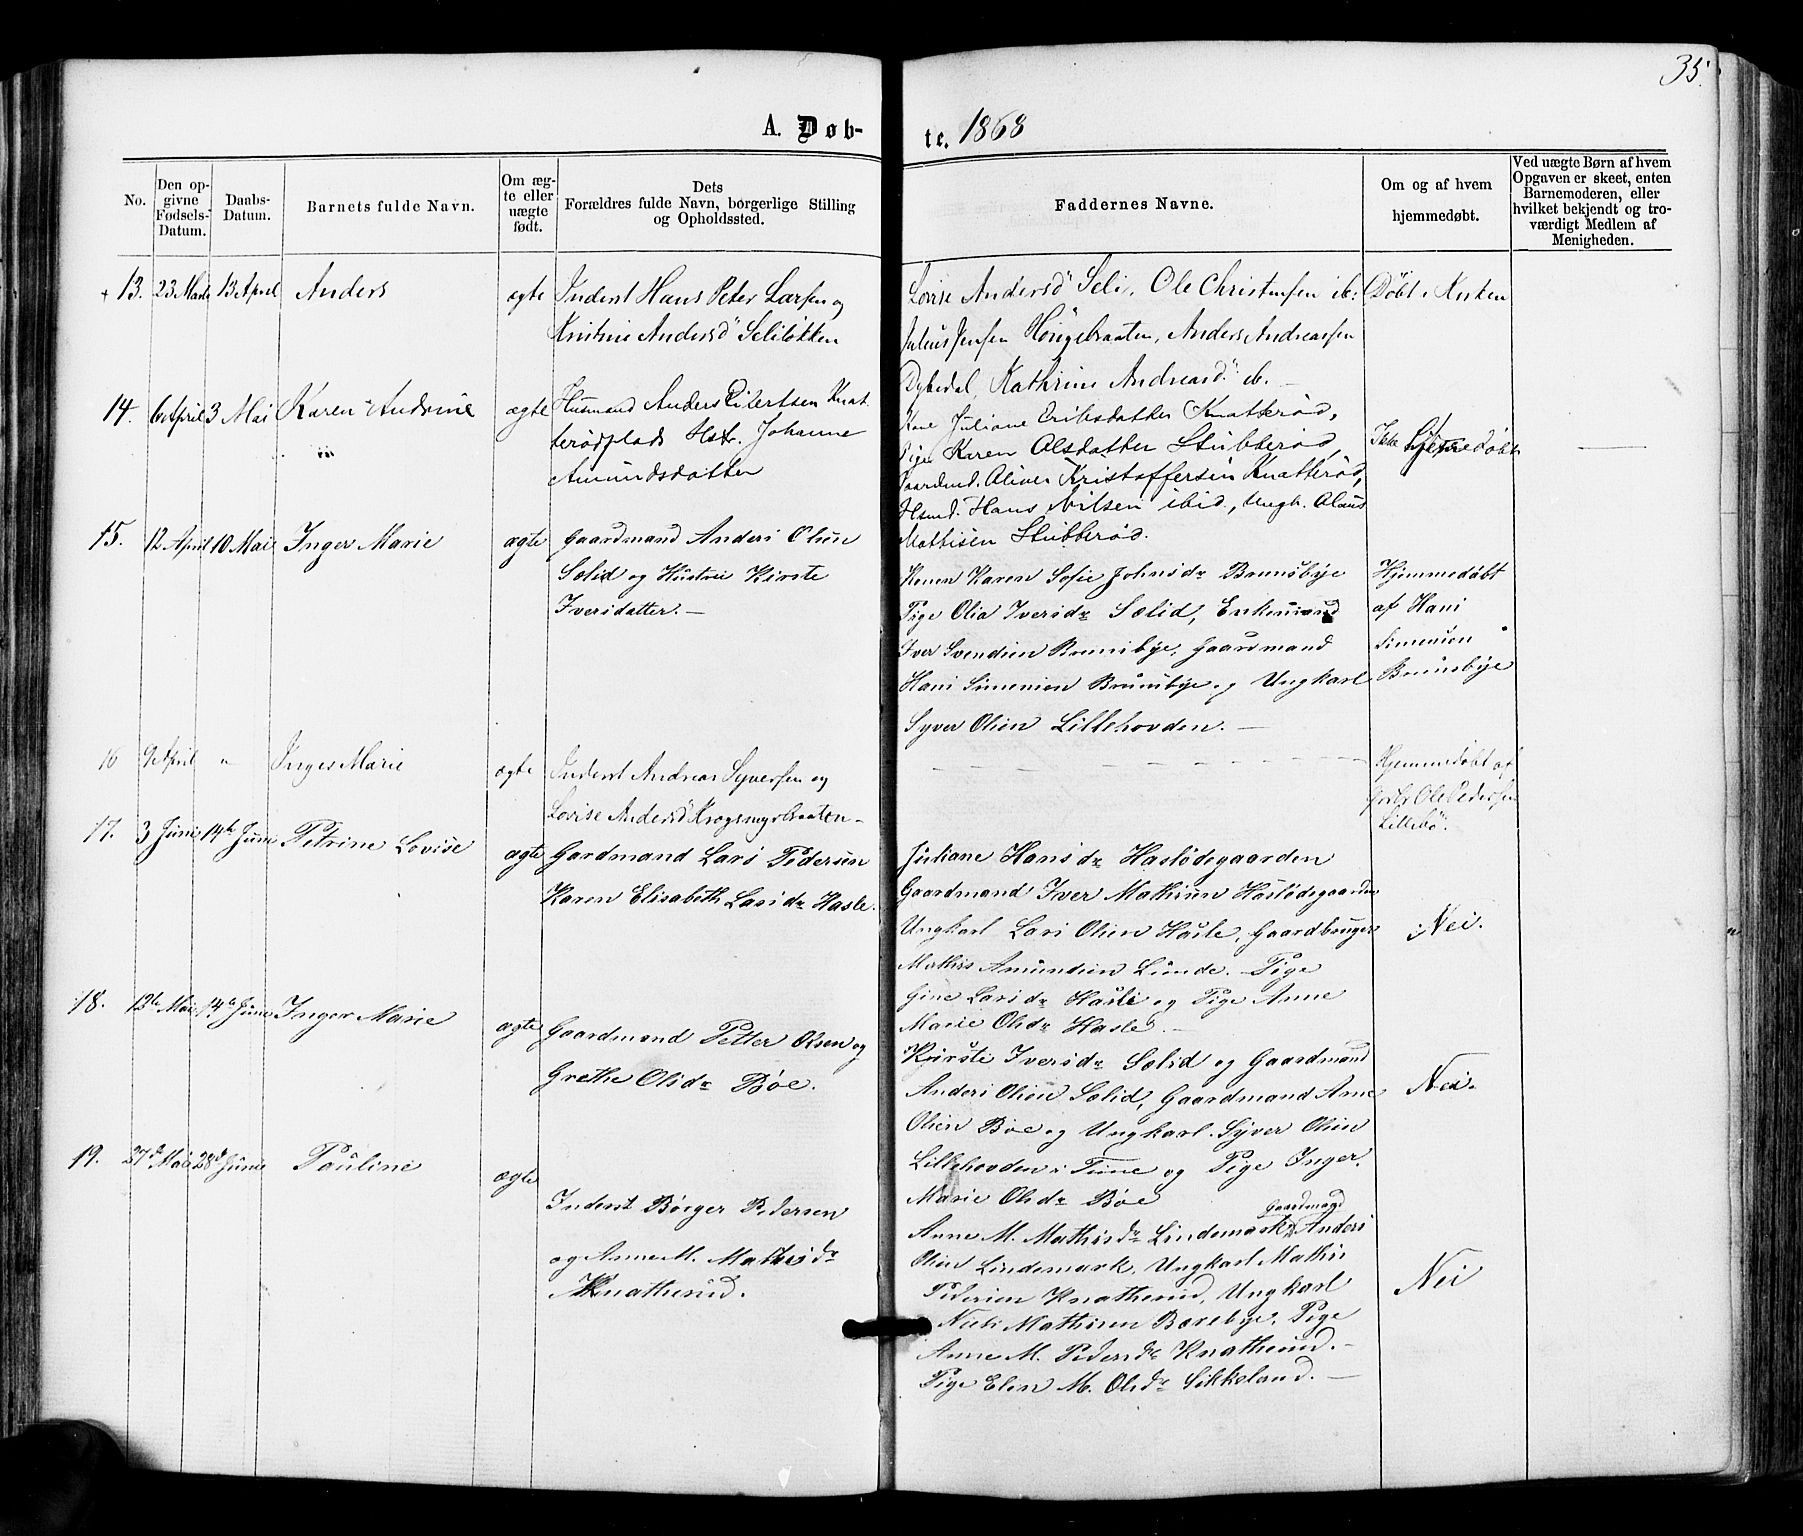 35.
A. Døb-
te. 1868
No.
Den op-
givne
Fødsels-
Datum.
Daabs-
Datum.
Barnets fulde Navn.
Om æg-
te eller
uægte
født.
Dets
Forældres fulde Navn, borgerlige Stilling
og Opholdssted.
Faddernes Navne.
Om og af hvem
hjemmedøbt.
Ved uægte Børn af hvem
Opgaven er skeet, enten
Barnemoderen, eller
hvilket bekjendt og tro-
værdigt Medlem af
Menigheden.
13. 23 Marts 13 April Anders ægte
Inderst Hans Peter Larsen og
Kristine Andersd" Seliløkken
Lovise Andersd" Seli, Ole Christensen ib:
Julius Jensen Høugsbraaten, Anders Andreassen
Dybedal, Kathrine Andreasd" ib. -
Døbt i Kirken
14. 6 April 3 Mai Karen Andrine ægte
Husmand Anders Eilertsen Knat
terødplads Hstr. Johanne
Amundsdatter
Kone Juliane Eriksdatter Knatterød,
Pige Karen Olsdatter Stubberød,
Gaardmd. Oliver Kristoffersen Knatterød,
Hsmd. Hans Nilsen ibid., Ungk. Olaus
Mattisen Stubberød.
Ikke hjemmedøbt
15. 12 April 10 Mai Inger Marie ægte
Gaardmand Anders Olsen
Sælid og Hustru Kirste
Iversdatter. -
Konen Karen Sofie Johnsdr Brunsbye
Pige Olia Iversdr Sælid, Enkemand
Iver Svendsen Brunsbye, Gaardmand
Hans Simensen Brunsbye og Ungkarl
Syver Olsen Lillehovden. -
Hjemmedøbt
af Hans
Simensen
Brunsbye
16 9 April " Inger Marie ægte
Inderst Andreas Syversen og
Lovise Andersd" Krogsmyrbraaten -
Hjemmedøbt af
Ole Pedersen
Lillebö.
17. 3 Juni 14de Juni Petrine Lovise ægte
Gardmand Lars Pedersen
Karen Elisabeth Larsdr Hasle.
Juliane Hansdr Haslødegaarden
Gaardmand Iver Mathisen Haslødegaarden
Ungkarl Lars Olsen Hasle, Gaardbruger
Mathis Amundsen Lunde. Pige
Gine Larsdr Hasle og Pige Anne
Marie Olsdr Hasle. -
Nei.
18. 12te Mai 14de Juni Inger Marie ægte
Gaardmand Petter Olsen og
Grethe Olsdr Bøe.
Kirste Iversdr Sælid og Gaardmand
Anders Olsen Sælid, Gaardmand Arne
Olsen Bøe og Ungkarl Syver Olsen
Lillehovden i Tune og Pige Inger
Marie Olsdr Bøe
Nei.
19. 27d Mai 28d Juni Pauline ægte
Inderst Børger Pedersen
og Anne M. Mathisdr
Knatherud.
Gaardmand
Anne M. Mathisdr Lindemark, Anders
Olsen Lindemark, Ungkarl Mathis
Pedersen Knatherud, Ungkarl
Niels Mathisen Borebye, Pige
Anne M. Pedersdr Knatherud. -
Pige Elen M. Olsdr Sikkeland. -
Nei